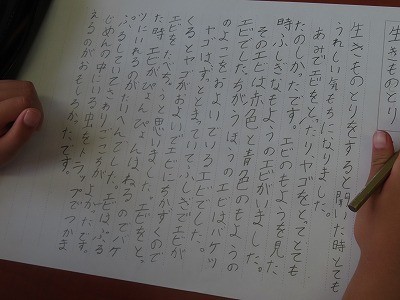 生きものとり
生きものとりをすると聞いた時とても
うれしい気もちになりました。
あみでエビをとったり、ヤゴをとってとても
たのしかったです。エビのもようを見た
時ふしぎなもようのエビがいました。
そのエビは赤色と青色のもようの
エビでした。ちがうほうのエビはバケツ
のよこをおよいでいるエビでした。
ヤゴはずっととまっていてふしぎでエビが
くるとヤゴがおよいでエビにちかずくので
エビをたべちゃうと思いました。エビをとっ
た時エビがぴょんぴょんはねるのでバケ
ツにいれるのがたいへんでした。エビはぷる
ぷるしていてさわりごこちがよかったです。
じめんの中にいる虫をトラップでつかま
えるのがおもしろかったです。